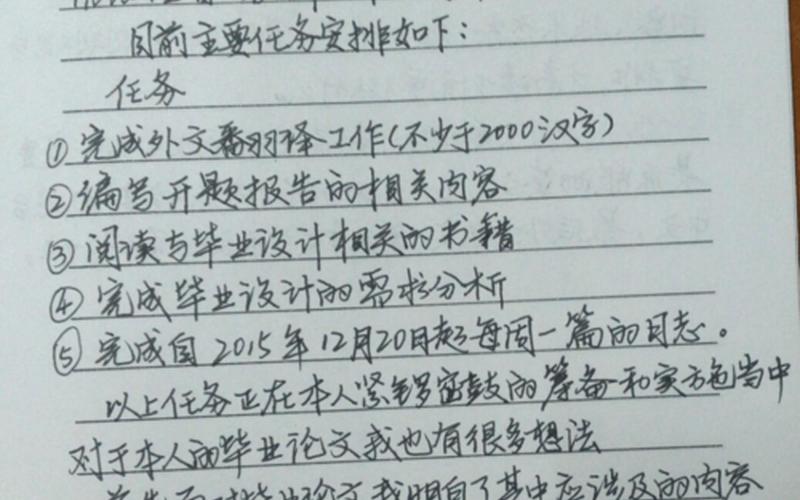 目前主要任务安排如下：
任务
①完成外文翻译工作(不少于2000汉字)
②编写开题报告的相关内容
③阅读与毕业设计相关的书籍
④完成毕业设计的需求分析
⑤完成自2015年12月20日起每周一篇的日志。
以上任务正在本人紧锣密鼓的筹备和实施当中
对于本人的毕业论文我也有很多想法
论文我明白了其中应涉及的内容